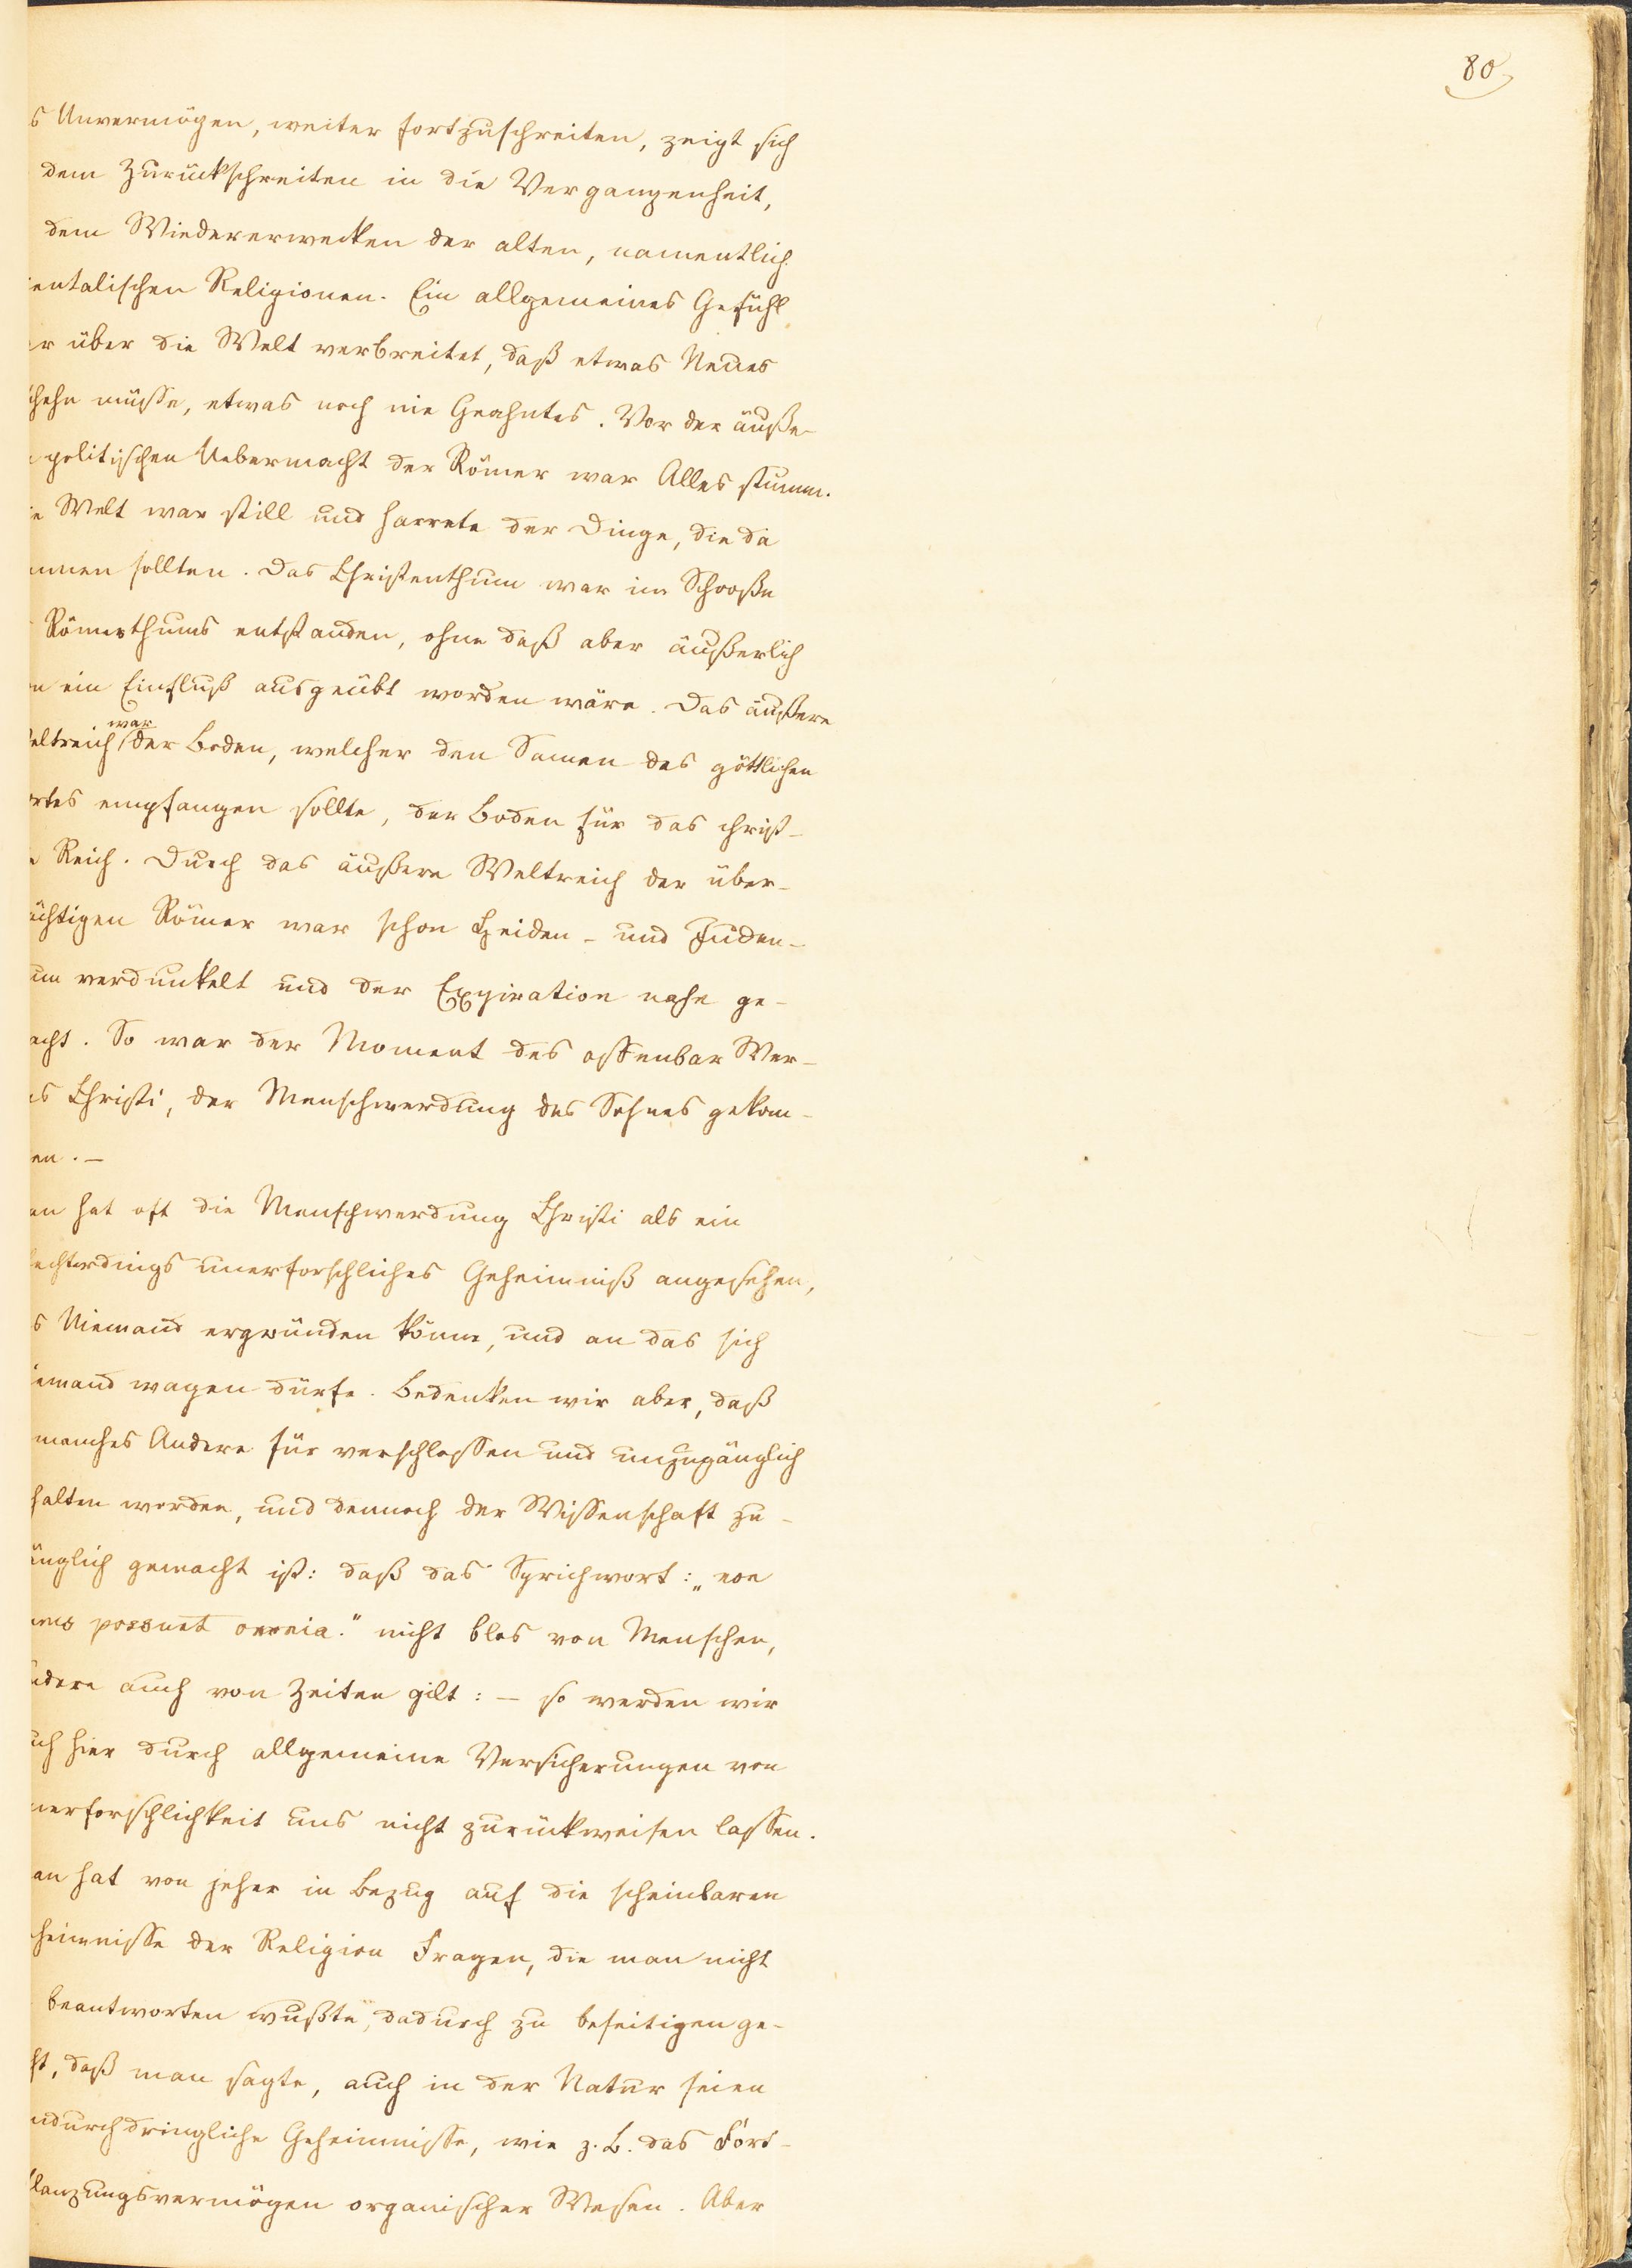 80
s Unvermögen, weiter fortzuschreiten, zeigt sich
dem Zurückschreiten in die Vergangenheit,
dem Wiedererwecken der alten, namentlich
ientalischen Religionen. Ein allgemeines Gefühl
r über die Welt verbreitet, daß etwas Neues
hehn müsse, etwas noch nie Geahntes. Vor der äuße-
politischen Uebermacht der Römer war Alles stumm.
e Welt war still und harrete der Dinge, die da
mmen sollten. Das Christenthum war im Schooße
Römerthums entstanden, ohne daß aber äußerlich
n ein Einfluß ausgeübt worden wäre. Das äußere
eltreich war der Boden, welcher den Samen des göttlichen
rtes empfangen sollte, der Boden für das christ-
Reich. Durch das äußere Weltreich der über-
ächtigen Römer war schon Heiden- und Juden-
um verdunkelt und der Expiration nahe ge-
acht. So war der Moment des offenbar Wer-
s Christi, der Menschwerdung des Sohnes gekom-
en. —
an hat oft die Menschwerdung Christi als ein
echterdings unerforschliches Geheimniß angesehen,
s Niemand ergründen könne, und an das sich
iemand wagen dürfe. Bedenken wir aber, daß
manches Andere für verschlossen und unzugänglich
halten worden, und dennoch der Wissenschaft zu-
änglich gemacht ist: daß das Sprichwort: „non
mnes possunt omnia." nicht blos von Menschen,
ndern auch von Zeiten gilt: — so werden wir
uch hier durch allgemeine Versicherungen von
nerforschlichkeit uns nicht zurückweisen lassen.
an hat von jeher in Bezug auf die scheinbaren
heimnisse der Religion Fragen, die man nicht
beantworten wußte, dadurch zu beseitigen ge-
ht, daß man sagte, auch in der Natur seien
ndurchdringliche Geheimnisse, wie z. B. das Fort-
flanzungsvermögen organischer Wesen. Aber